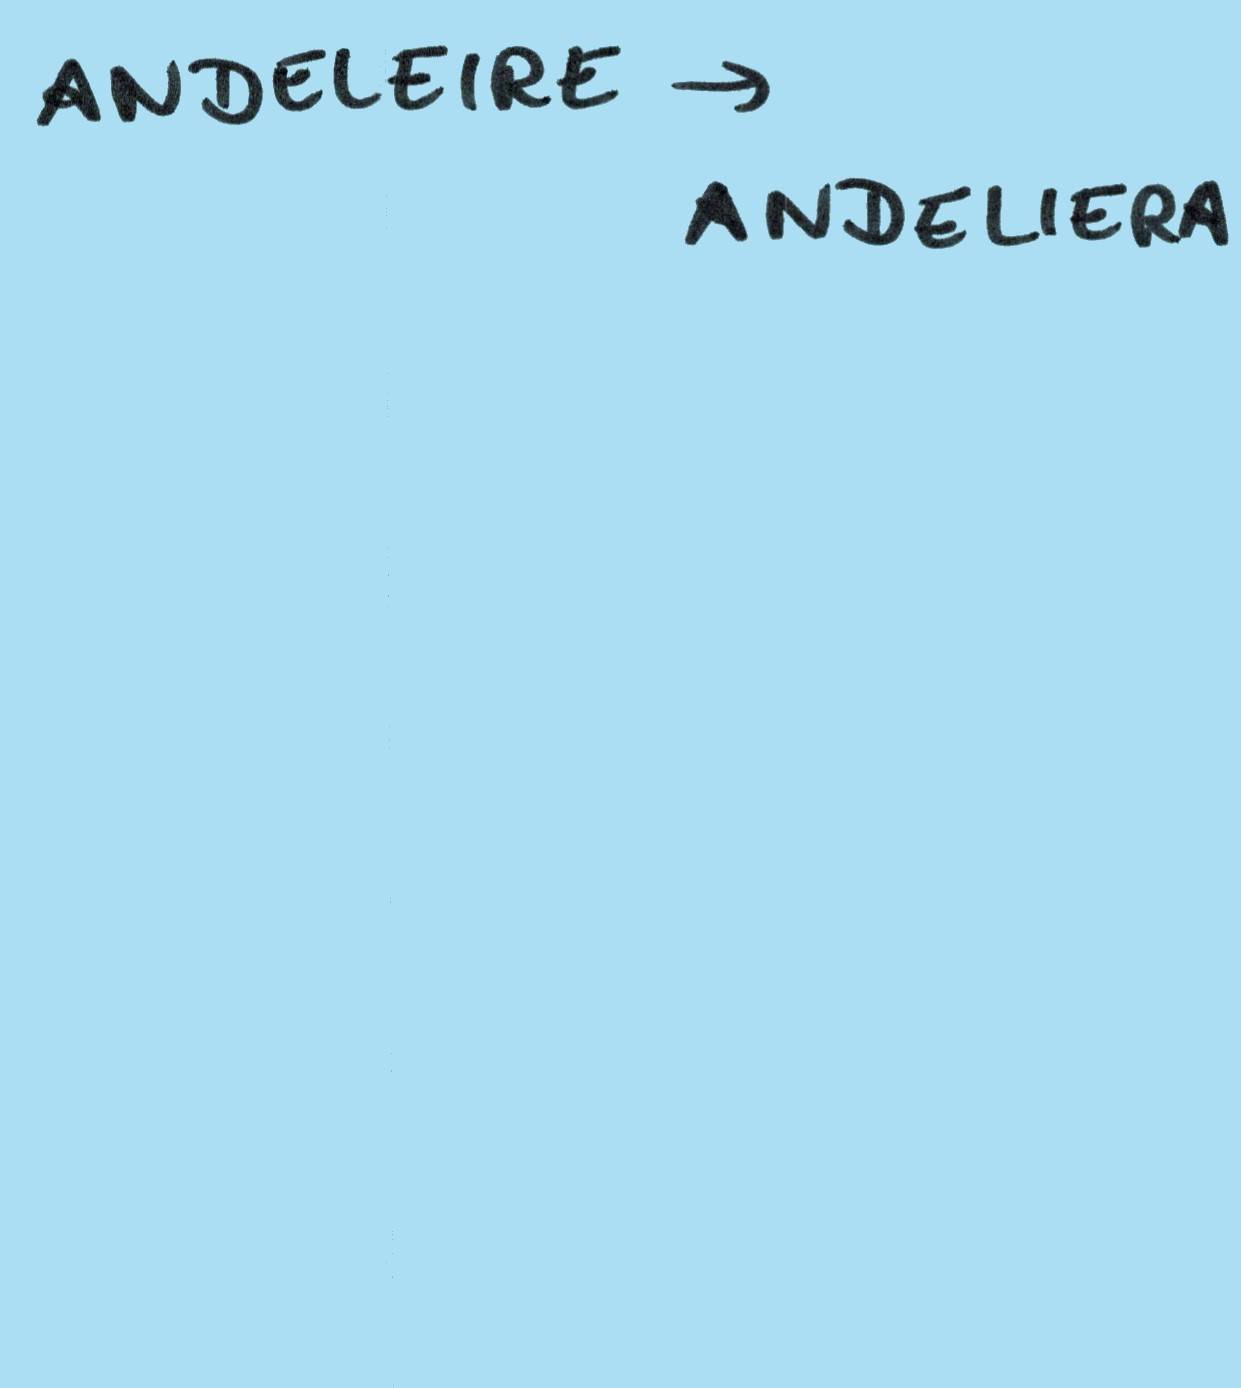 ANDELEIRE →
ANDELIERA